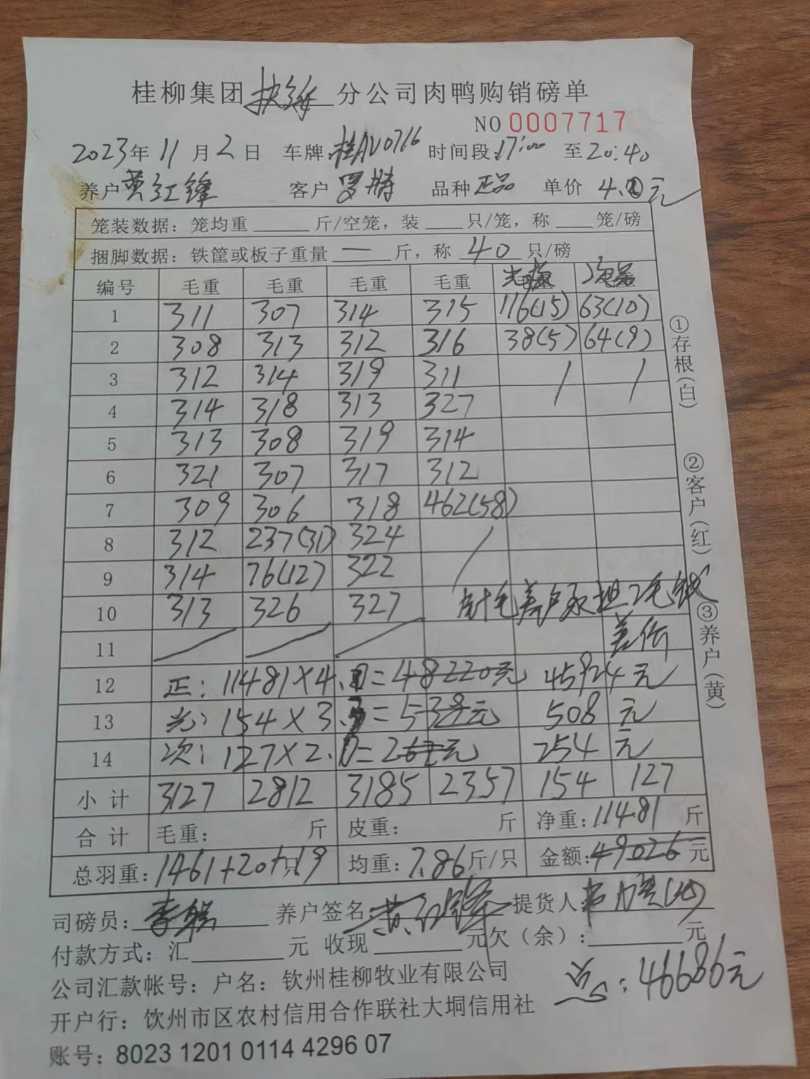 桂柳集团 分公司肉鸭购销磅单
NO 0007717
2023年11月2日 车牌:桂AV0716 时间段:17:00 至20:40
养户黄红锋 客户罗腾 品种正品 单价4.0元
笼装数据:笼均重 斤/空笼,装 只/笼,称 笼/磅
捆脚数据:铁筐或板子重量 一 斤,称 40 只/磅
编号 毛重 毛重 毛重 毛重
1 311 307 314 315 116(15) 63(10)
2 308 313 312 316 38(5) 64(9)
3 312 314 319 311 / /
4 314 318 313 327
5 313 308 319 314
6 321 307 317 312
7 309 306 318 462(58)
8 312 237(31) 324 /
9 314 76(12) 322
10 313 326 327 针毛养户承担2毛钱
11 / / / 差价
12 正:11481×4. =48220元 45924元
13 光:154×3. =538元 508元
14 次:127×2.0= 元 254元
小计 3127 2812 3185 2357 154 127
合计 毛重: 斤 皮重: 斤 净重:11481 斤
总羽重:1461+20+19 只 均重:7.86斤/只 金额:49026元
司磅员: 养户签名 黄红锋 提货人
付款方式:汇 元 收现 元欠(余): 元
公司汇款帐号:户名:钦州桂柳牧业有限公司
总:46686元
开户行:钦州市区农村信用合作联社大垌信用社
账号:8023 1201 0114 4296 07
①存根(白)
②客户(红)
③养户(黄)